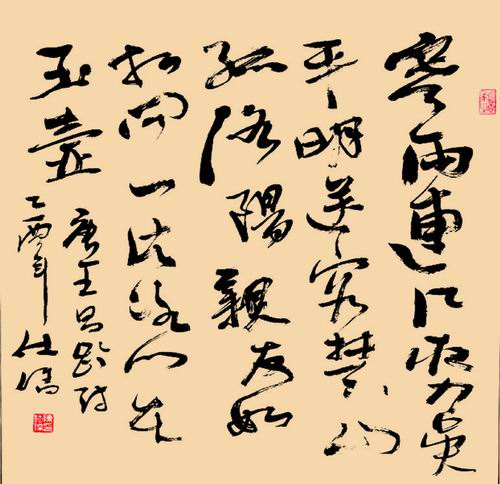 寒雨連江夜入吳
平明送客楚山
孤洛陽親友如
相問一片冰心在
玉壺
唐王昌齡詩
乙酉年